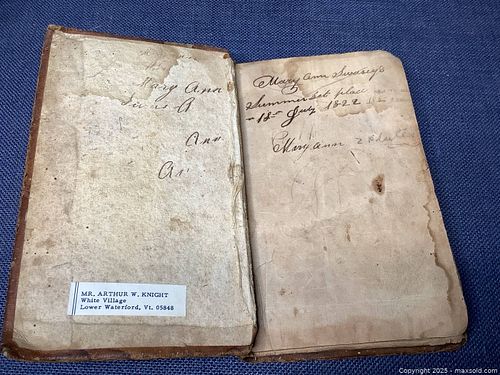 Mary Ann
A
Ann
MR. ARTHUR W. KNIGHT
White Village
Lower Waterford, Vt. 05848
Mary Ann Swasey's
Summerset place
18 July 1822
Mary Ann
Copyright 2025 - maxsold.com